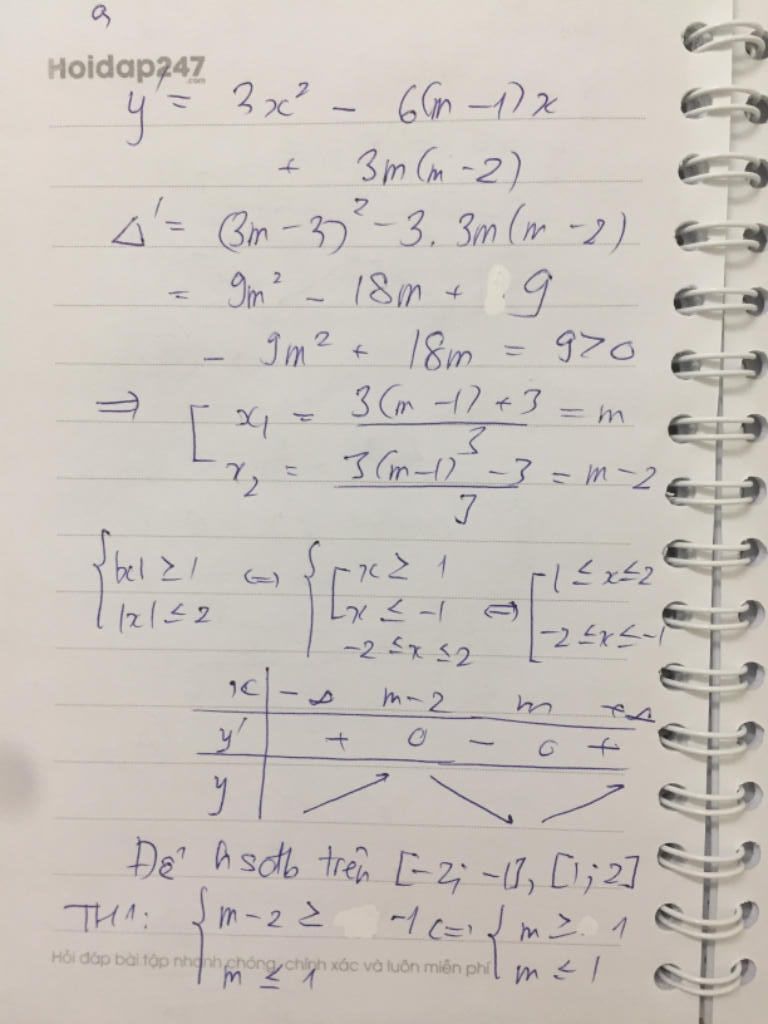 a
Hoidap247
.com
y' = 3x² - 6(m - 1)x
+ 3m(m - 2)
Δ' = (3m - 3)² - 3. 3m(m - 2)
= 9m² - 18m + 9
- 9m² + 18m = 9 > 0
⇒ [ x₁ = (3(m - 1) + 3)/3 = m
x₂ = (3(m-1) - 3)/3 = m - 2
{ |x| ≥ 1 ⇔ { [ x ≥ 1 ⇔ [ 1 ≤ x ≤ 2
|x| ≤ 2 x ≤ -1 -2 ≤ x ≤ -1
-2 ≤ x ≤ 2
x | -∞ m-2 m +∞
y' | + 0 - 0 +
y | ↗ ↘ ↗
Để hsđb trên [-2; -1], [1; 2]
TH1: { m - 2 ≥ -1 ⇔ { m ≥ 1
m ≤ 1 m ≤ 1
Hỏi đáp bài tập nhanh chóng, chính xác và luôn miễn phí